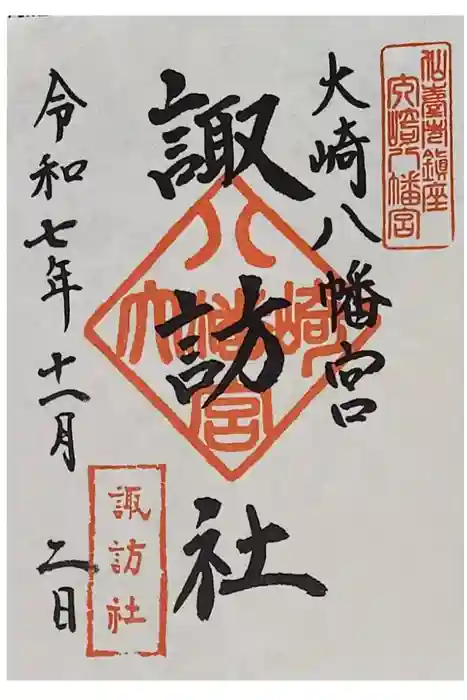 仙臺市鎮座
大崎八幡宮
大崎八幡宮
諏訪社
八幡宮
大崎
諏訪社
令和七年十一月二日